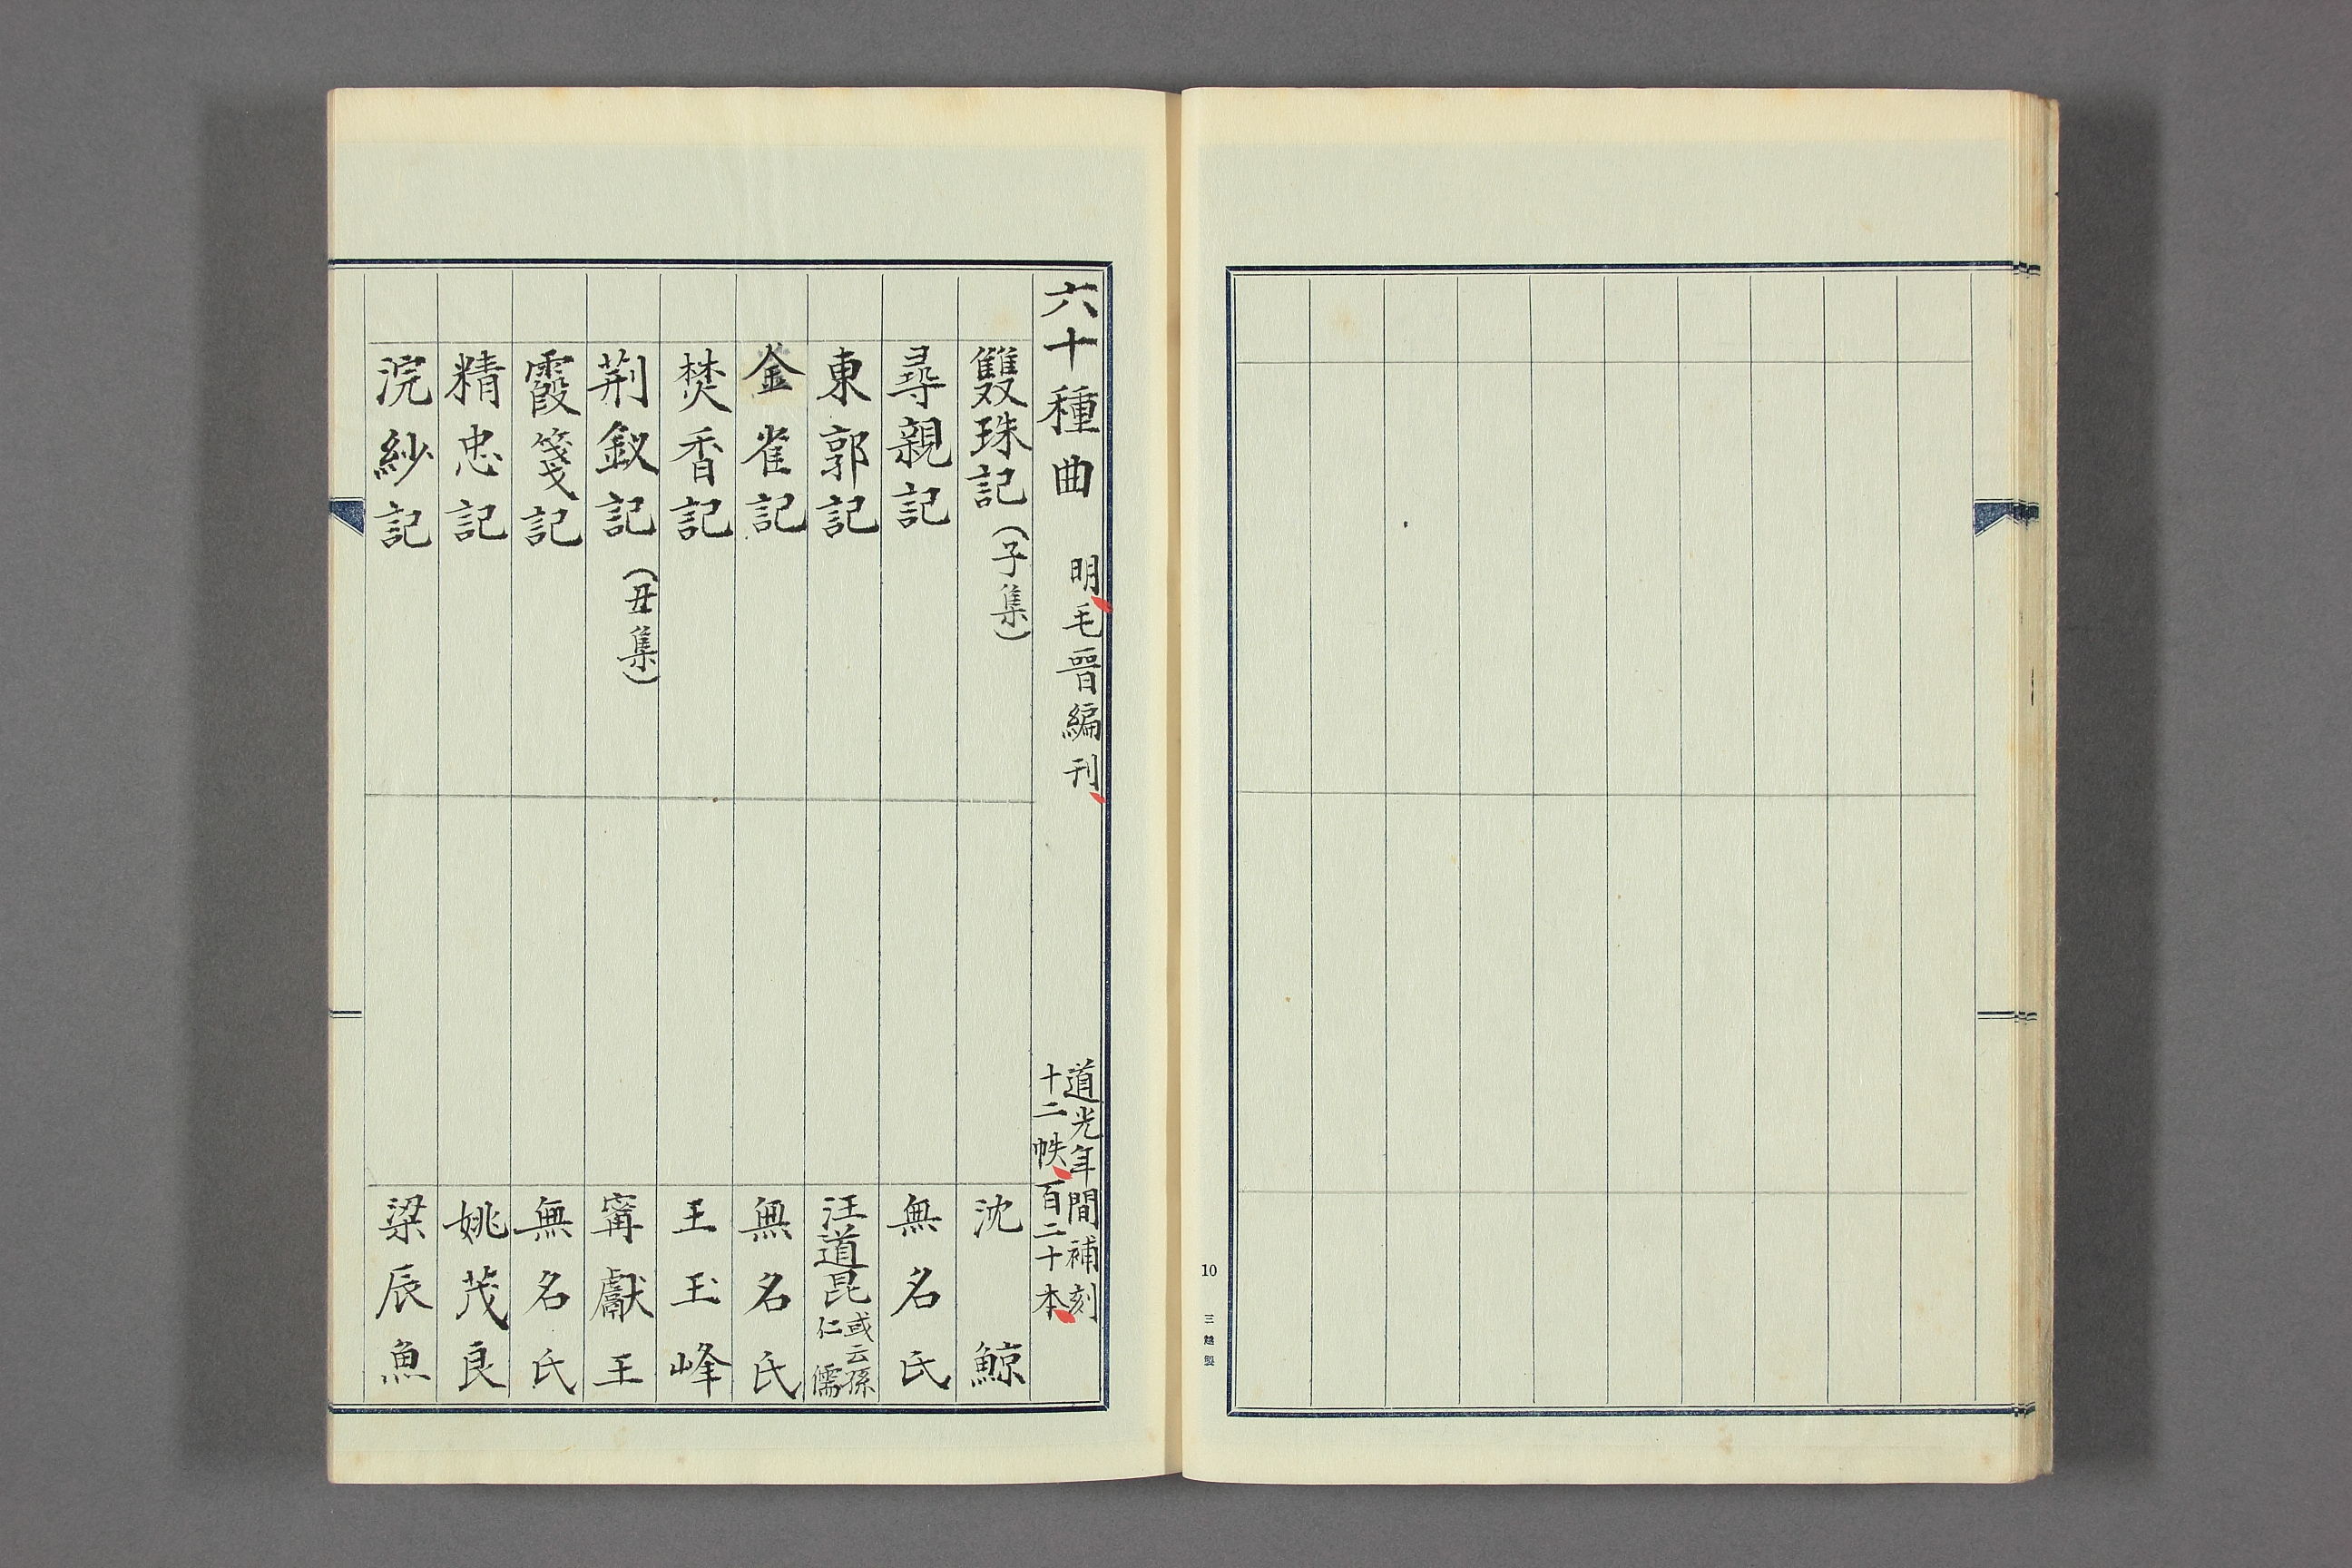 10
三越製
六十種曲　明毛晉編刊　道光年間補刻
十二帙百二十本
雙珠記(子集)　沈鯨
尋親記　無名氏
東郭記　汪道昆 或云孫仁儒
金雀記　無名氏
焚香記　王玉峰
荊釵記(丑集)　寗獻王
霞箋記　無名氏
精忠記　姚茂良
浣紗記　梁辰魚